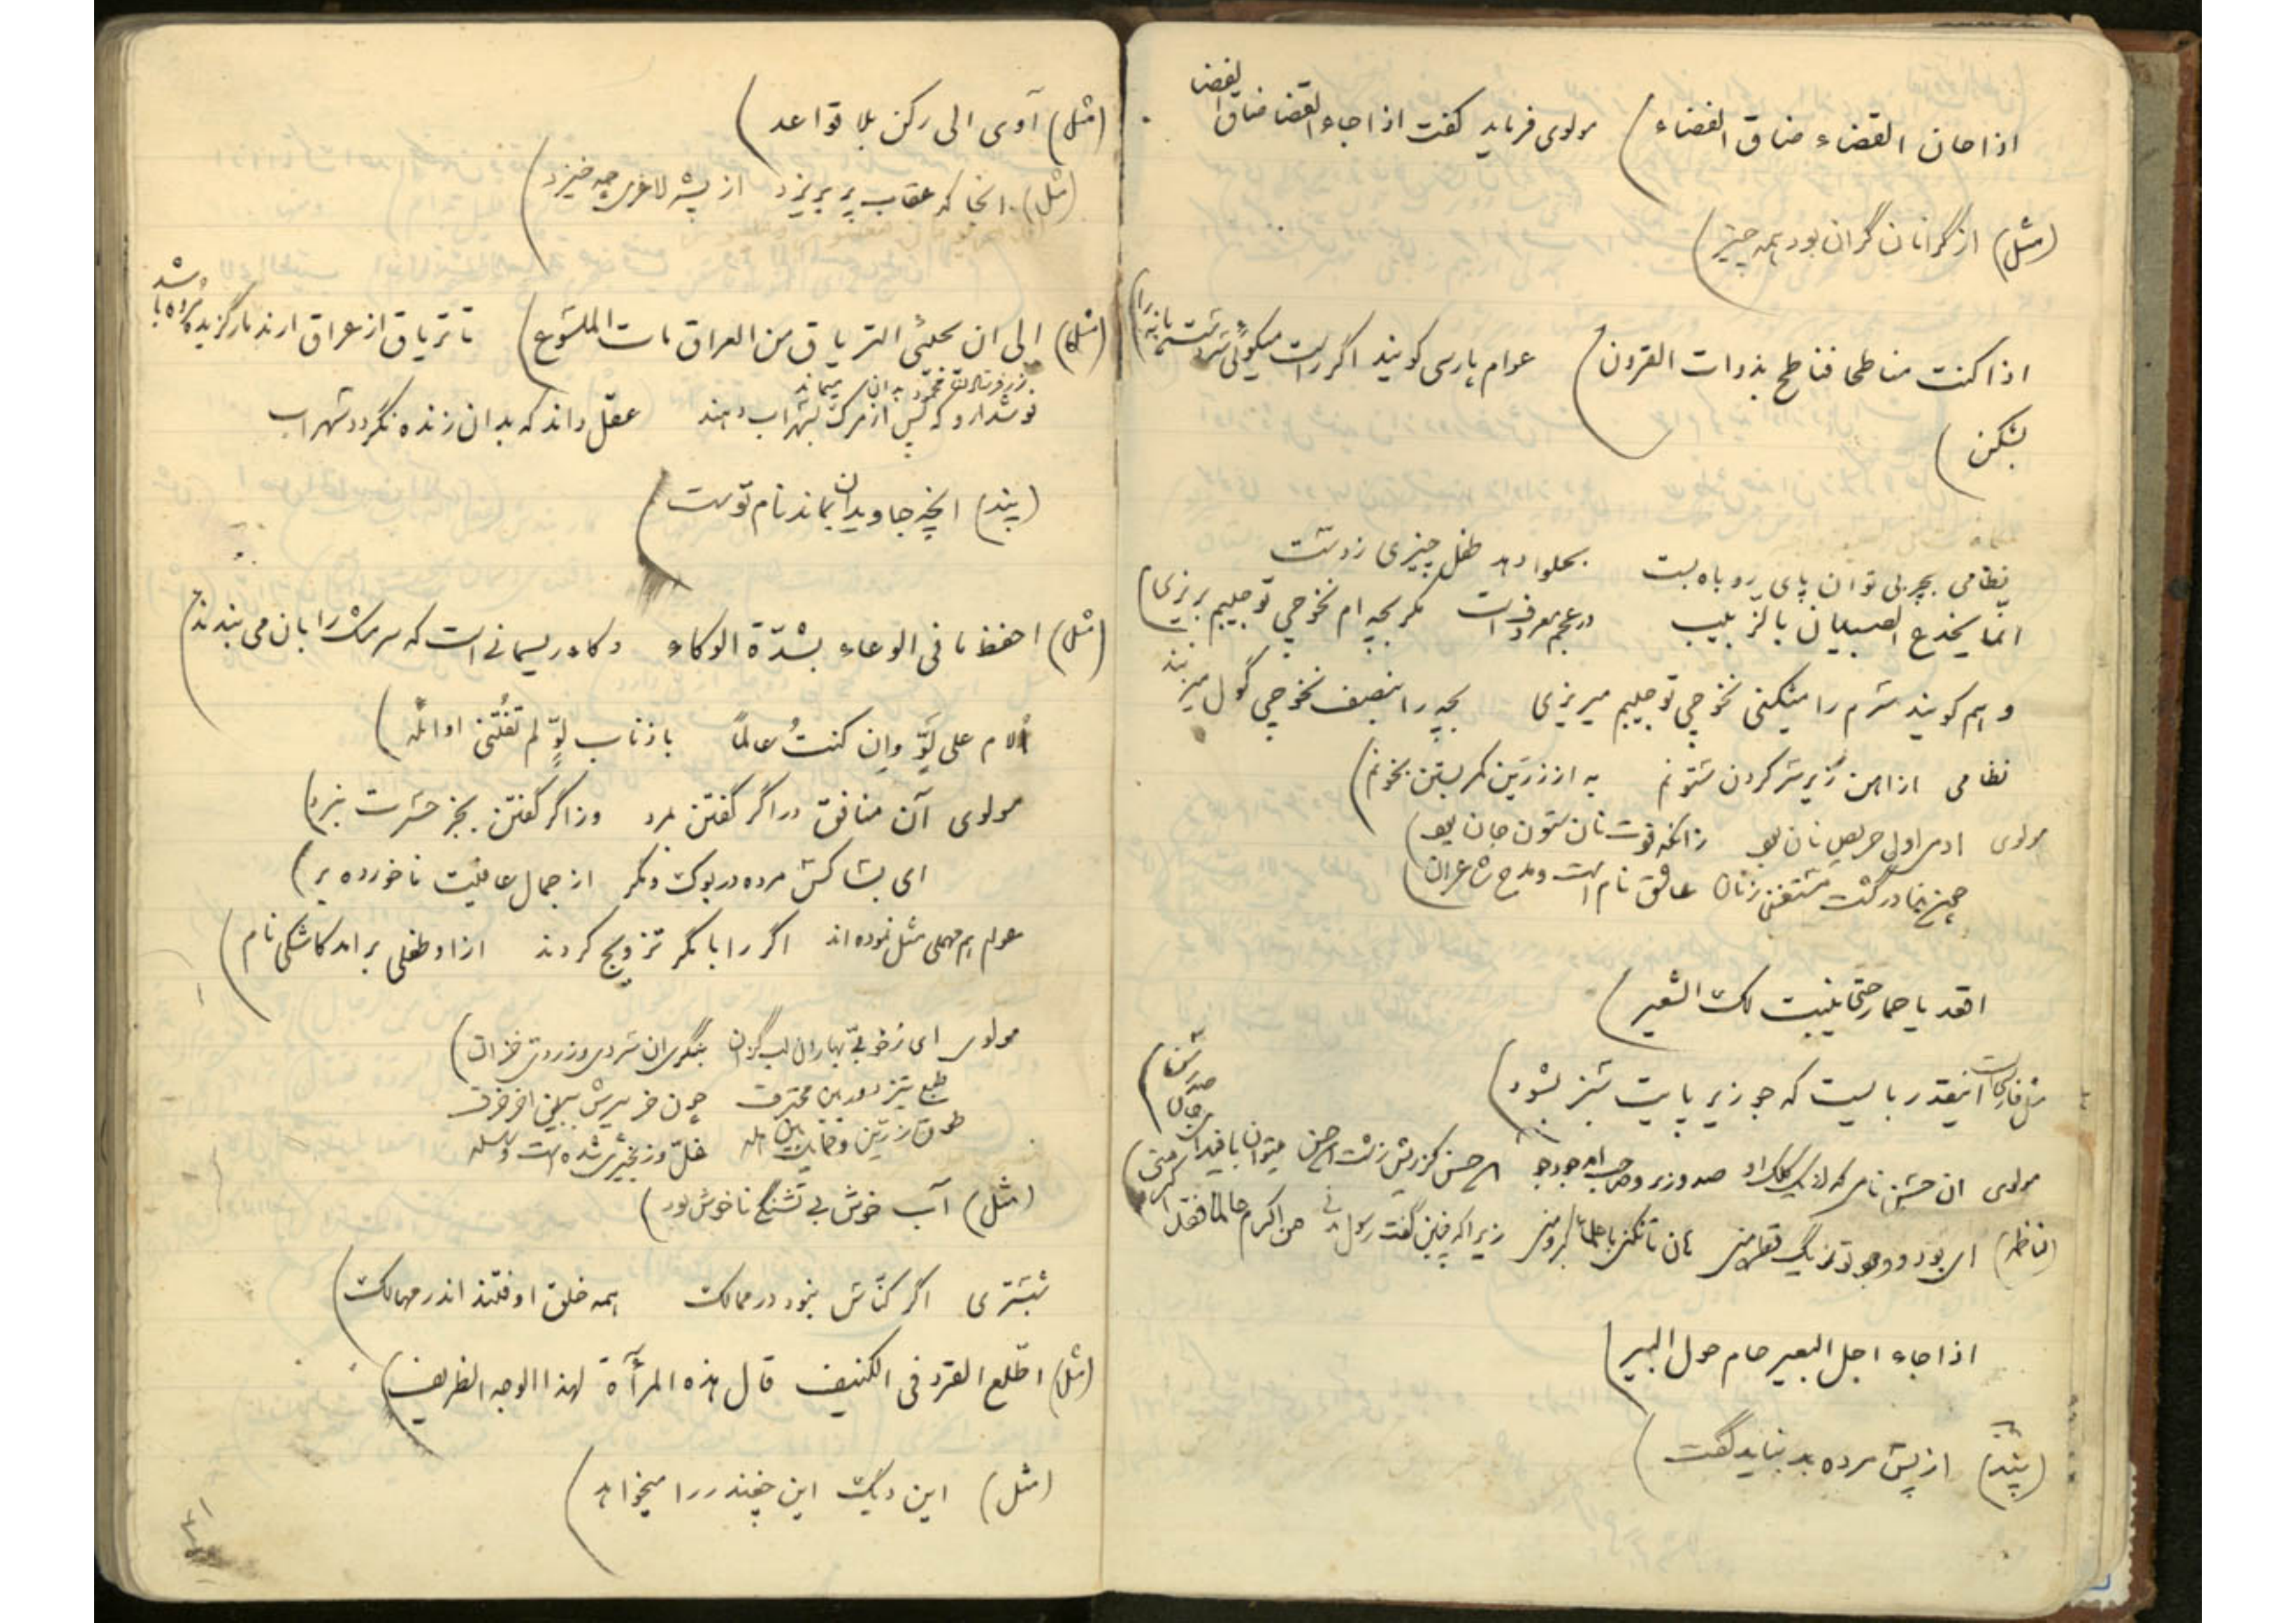 اذا حان القضاء ضاق الفضاء) مولوی فرماید گفت اذا جاء القضا ضاق الفضا
(مثل) از گرانان گران بود همه چیز)
اذا كنت مناطحا فناطح بذوات القرون) عوام پارسی کویند اگر راست میکوئی
بشکن)
نظامی بچربی توان پای روباه بست بحلوا دهد طفل چیزی ز دست
انّما یخدع الصبیان بالزبیب در عجم معروفست مگر بچه ام نخوچی تو جیبم بریزی)
و هم کویند شرم را میکنی نخوچی تو جیبم میریزی بچه را بنصیف نخوچی گول میزنند
نظامی از آهن زیر سر کردن ستونم به از زرین کمر بستن بخونم)
مولوی ادمی اول حریص نان بود زانکه قوت نان ستون جان بود)
چون بنادر گشت مستغنی ز نان عاشق نام است و مدح شاعران)
اقعد یا حمار حتی ینبت لک الشعیر)
مثل فارسی است اینقدر بایست که جو زیر پایت سبز بشود)
مولوی ان حسن نامی که از یک کلک او صد وزیر و صاحب اید جودجو
(ناظم) ای بود و وجود تو زیک قطره منی هان تا نکنی با علما کبر و منی زیرا که چنین گفت رسول مدنی من اکرم عالما فقد اکرمنی)
اذا جاء اجل البعیر حام حول البیر)
(پند) از پس مرده بد نباید گفت)
(مثل) آوی الی رکن بلا قواعد)
(مثل) انجا که عقاب پر بریزد از پشه لاغری چه خیزد)
(مثل) الی ان یجئی التریاق من العراق مات الملسوع) تا تریاق از عراق ارند مار گزیده مرده باشد
نوشدارو که پس از مرگ بسهراب دهند عقل داند که بدان زنده نگردد سهراب
(پند) انچه جاویدان بماند نام توست)
(مثل) احفظ ما فی الوعاء بشدّة الوکاء وکاء ریسمانی است که سر مشک را بان می بندند)
اُلام علی لَوٍّ وان کنتُ عالماً باذناب لوٍّ لم تفُتنی اوائله)
مولوی آن منافق در اگر گفتن بمرد وز اگر گفتن بجز حسرت نبرد)
ای بسا کش مرده در بوک و مگر از جمال عافیت ناخورده بر)
عوام هم مهملی مثل نموده اند اگر را با مگر تزویج کردند ازاو طفلی برامد کاشکی نام)
مولوی ای ز خوبی بهاران لب گزان بنگر ان سردی و زردی خزان)
طبع تیز دوربین محترف چون خر پیرش ببین اخر خرف
طوق زرین و حمایل بین هله غل و زنجیری شده است و سلسله
(مثل) آب خوش بی تشنگی ناخوش بود)
شبستری اگر کنّاس نبود در ممالک همه خلق اوفتند اندر مهالک)
(مثل) اطّلع القرد فی الکنیف قال هذه المرأة لهذا الوجه الظریف)
(مثل) این دیگ این چغندر را میخواهد)